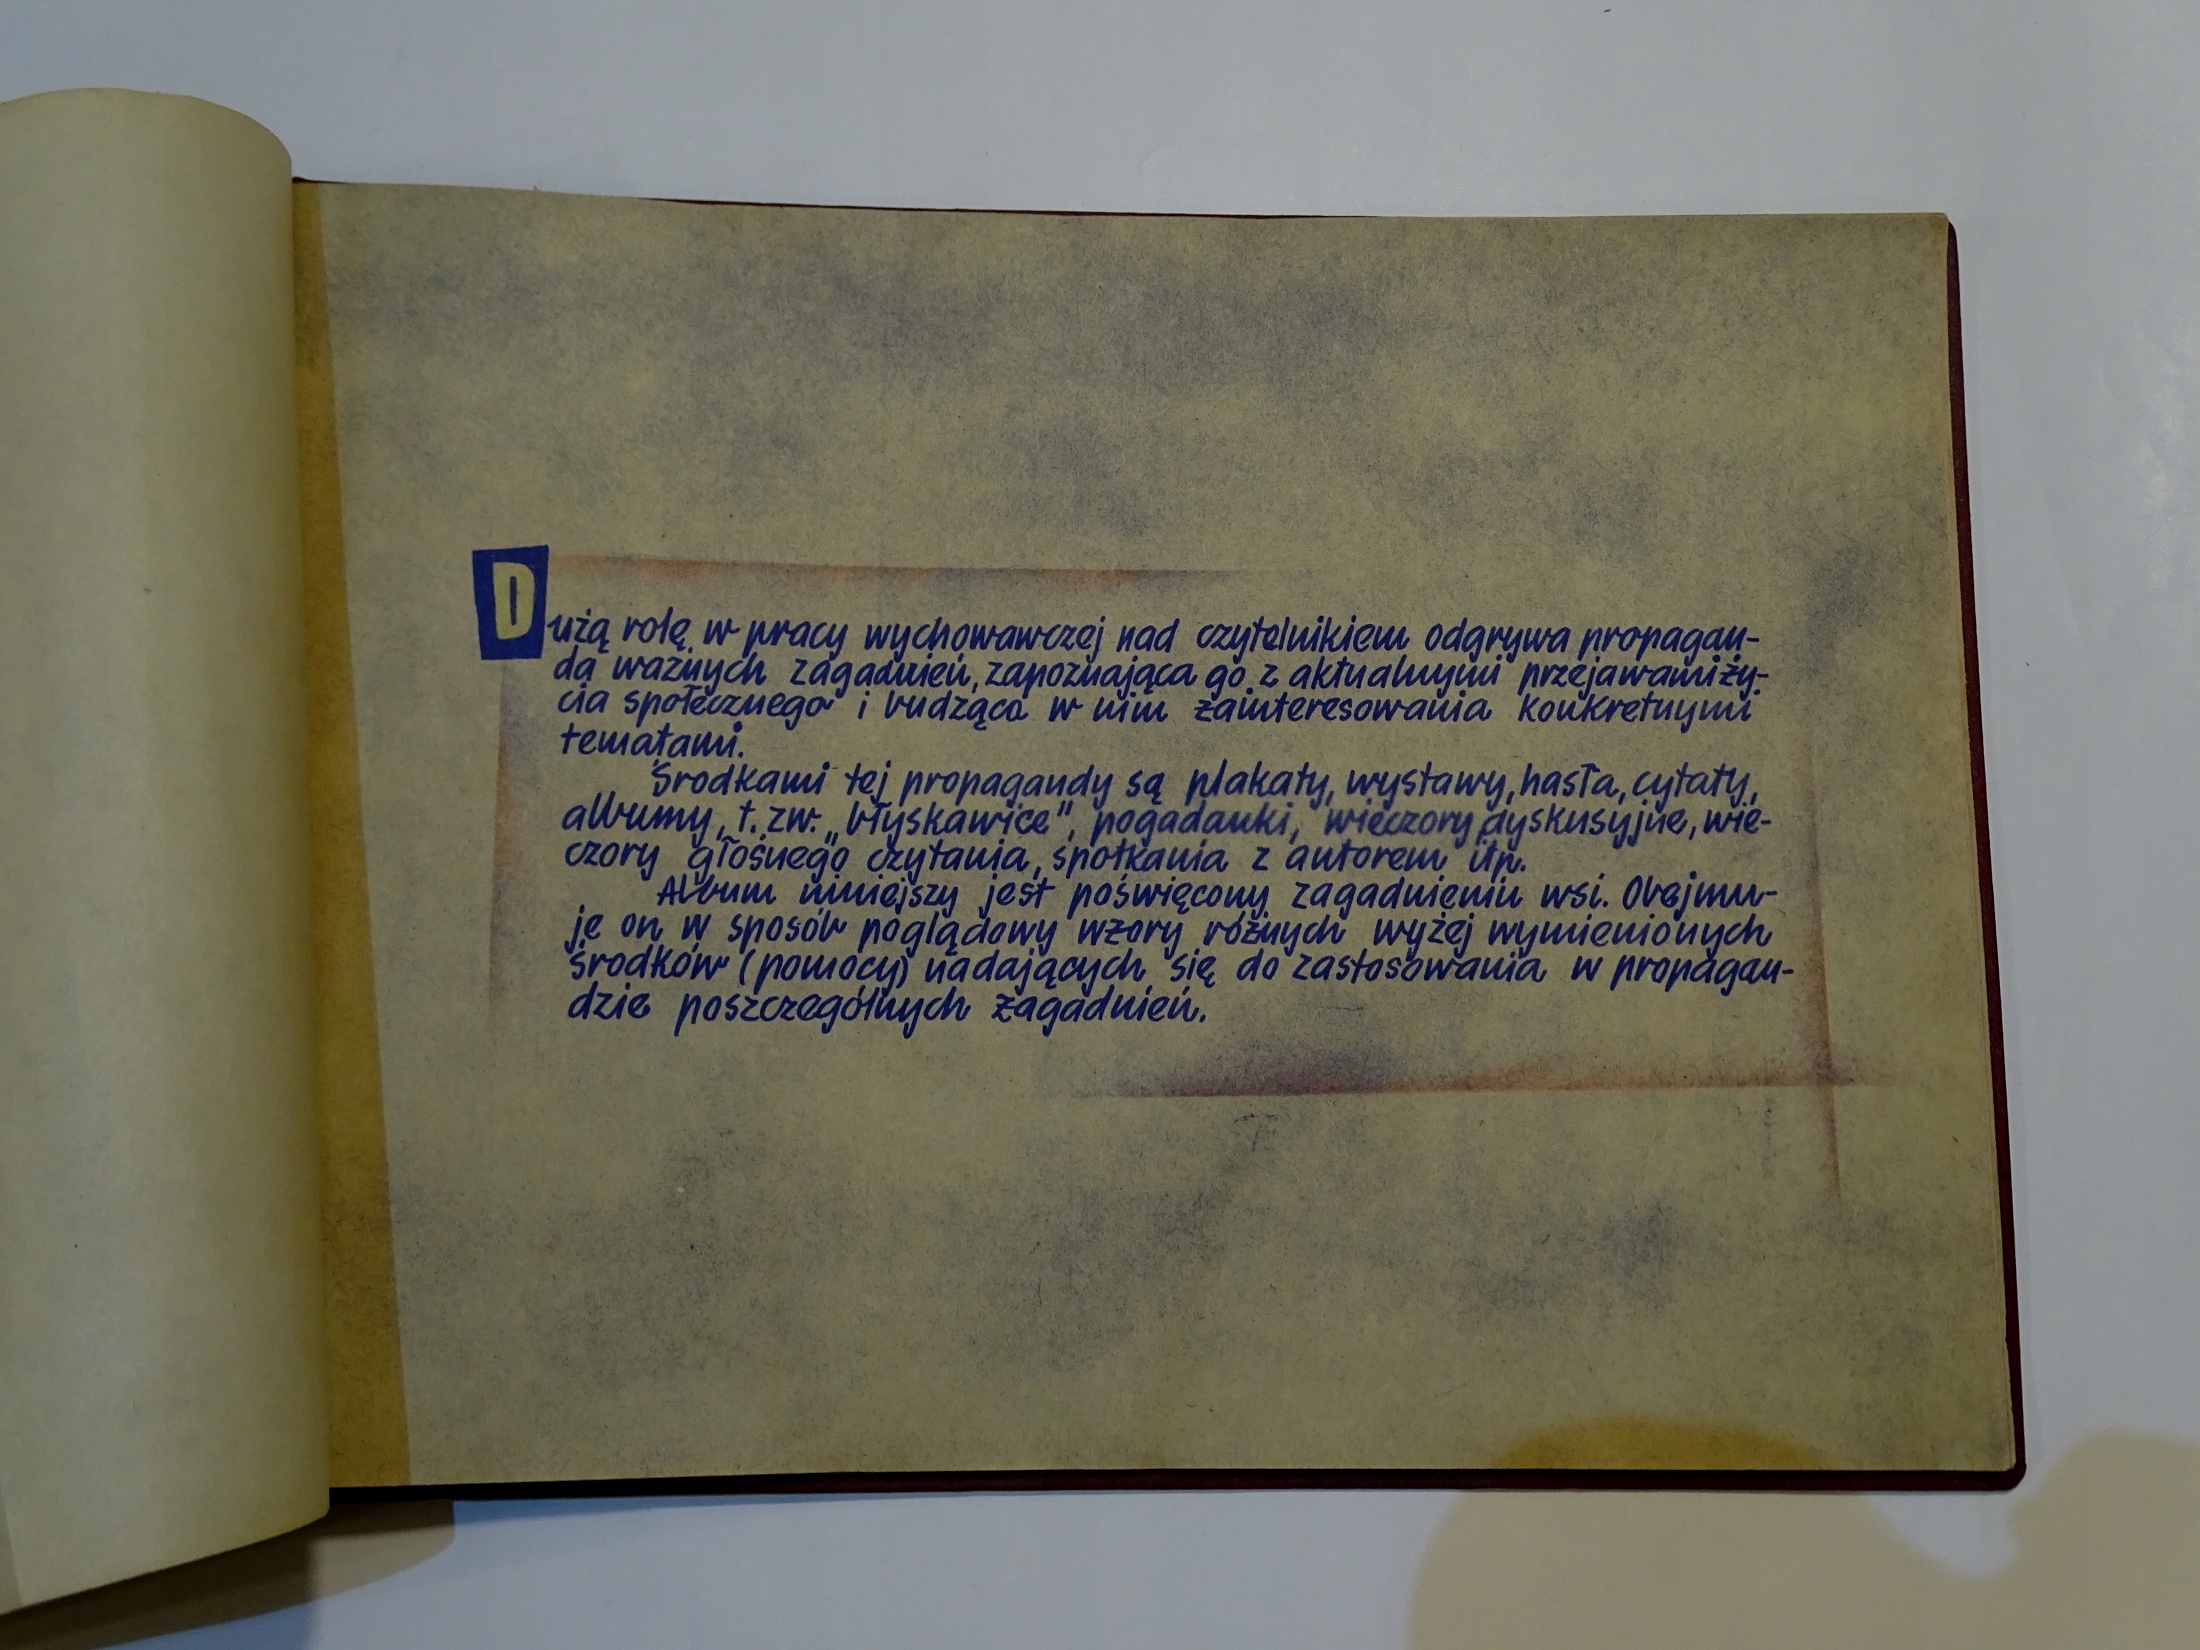 Dużą rolę w pracy wychowawczej nad czytelnikiem odgrywa propagan-
da ważnych zagadnień, zapoznająca go z aktualnymi przejawami ży-
cia społecznego i budząca w nim zainteresowania konkretnymi
tematami.
Środkami tej propagandy są plakaty, wystawy, hasła, cytaty,
albumy, t. zw. „błyskawice", pogadanki, wieczory dyskusyjne, wie-
czory głośnego czytania, spotkania z autorem itp.
Album niniejszy jest poświęcony zagadnieniu wsi. Obejmu-
je on w sposób poglądowy wzory różnych wyżej wymienionych
środków (pomocy) nadających się do zastosowania w propagan-
dzie poszczególnych zagadnień.